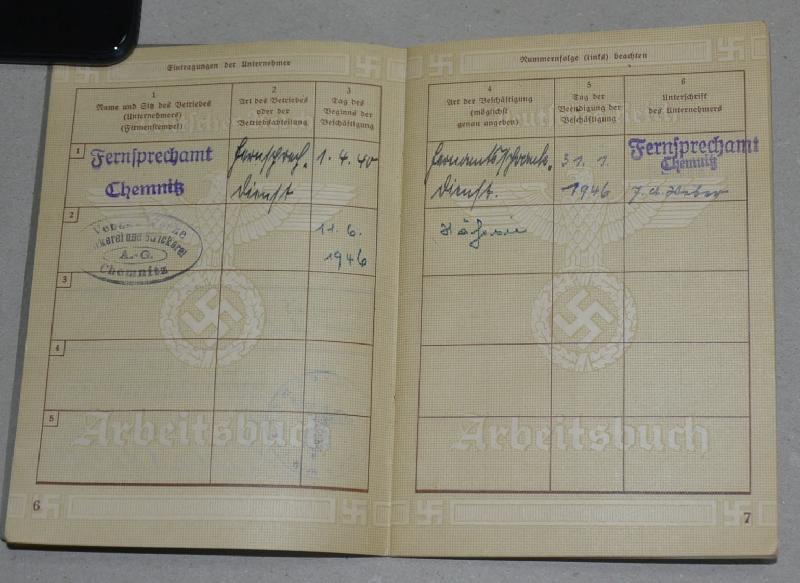 Eintragungen der Unternehmer
1
Name und Sitz des Betriebes
(Unternehmers)
(Firmenstempel)
2
Art des Betriebes
oder der
Betriebsabteilung
3
Tag des
Beginns der
Beschäftigung
1
Fernsprechamt
Chemnitz
Fernsprech-
dienst
1.4.40
2
A.-G.
Chemnitz
11.6.
1946
3
4
5
Arbeitsbuch
6
Nummernfolge (links) beachten
4
Art der Beschäftigung
(möglichst
genau angeben)
5
Tag der
Beendigung der
Beschäftigung
6
Unterschrift
des Unternehmers
dienst.
31.1.
1946
Fernsprechamt
Chemnitz
Weber
Näherin
Arbeitsbuch
7